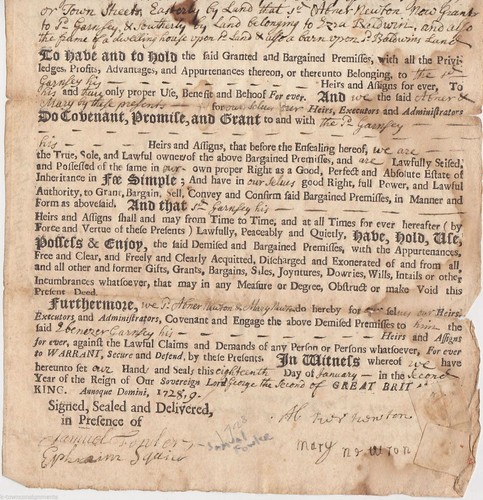 or Town Street Easterly by Land that sd Abner Newton Now Grant
to sd Garnsey, & Southerly by Land belonging to Ezra Baldwin, and also
the frame of a dwelling house upon sd Land & also a barn upon sd Baldwins Land
To Have and to Hold the said Granted and Bargained Premisses, with all the Privi-
ledges, Profits, Advantages, and Appurtenances thereon, or thereunto Belonging, to the sd
Garnsey his Heirs and Assigns for ever, To
his and their only proper Use, Benefit and Behoof For ever. And we the said Abner &
Mary by these presents for our selves our Heirs, Executors and Administrators
Do Covenant, Promise, and Grant to and with the sd Garnsey
his Heirs and Assigns, that before the Ensealing hereof, we are
the True, Sole, and Lawful owners of the above Bargained Premisses, and are Lawfully Seised,
and Possessed of the same in our own proper Right as a Good, Perfect and Absolute Estate of
Inheritance in Fee Simple; and have in our selves good Right, full Power, and Lawful
Authority, to Grant, Bargain, Sell, Convey and Confirm said Bargained Premisses, in Manner and
Form as abovesaid. And that sd Garnsey his
Heirs and Assigns shall and may from Time to Time, and at all Times for ever hereafter (by
Force and Vertue of these Presents) Lawfully, Peaceably and Quietly, Have, Hold, Use,
Possess & Enjoy, the said Demised and Bargained Premisses, with the Appurtenances,
Free and Clear, and Freely and Clearly Acquitted, Discharged and Exonerated of and from all
and all other and former Gifts, Grants, Bargains, Sales, Joyntures, Dowries, Wills, Intails or other
Incumbrances whatsoever, that may in any Measure or Degree, Obstruct or make Void this
Present Deed.
Furthermore, we sd Abner Newton & Mary Newton do hereby for our selves our Heirs
Executors, and Administrators, Covenant and Engage the above Demised Premisses to him the
said Ebenezer Garnsey his Heirs and Assigns
for ever, against the Lawful Claims and Demands of any Person or Persons whatsoever, For ever
to WARRANT, Secure and Defend, by these Presents. In Witness whereof we have
hereunto set our Hand and Seals this eighteenth Day of January in the Second
Year of the Reign of Our Sovereign Lord George the Second of GREAT BRIT
KING. Annoque Domini, 1728,9.
Signed, Sealed and Delivered,
in Presence of
Abner newton
Samuel Fowler
1728
Samuel
Fowler
mary newton
Ephraim